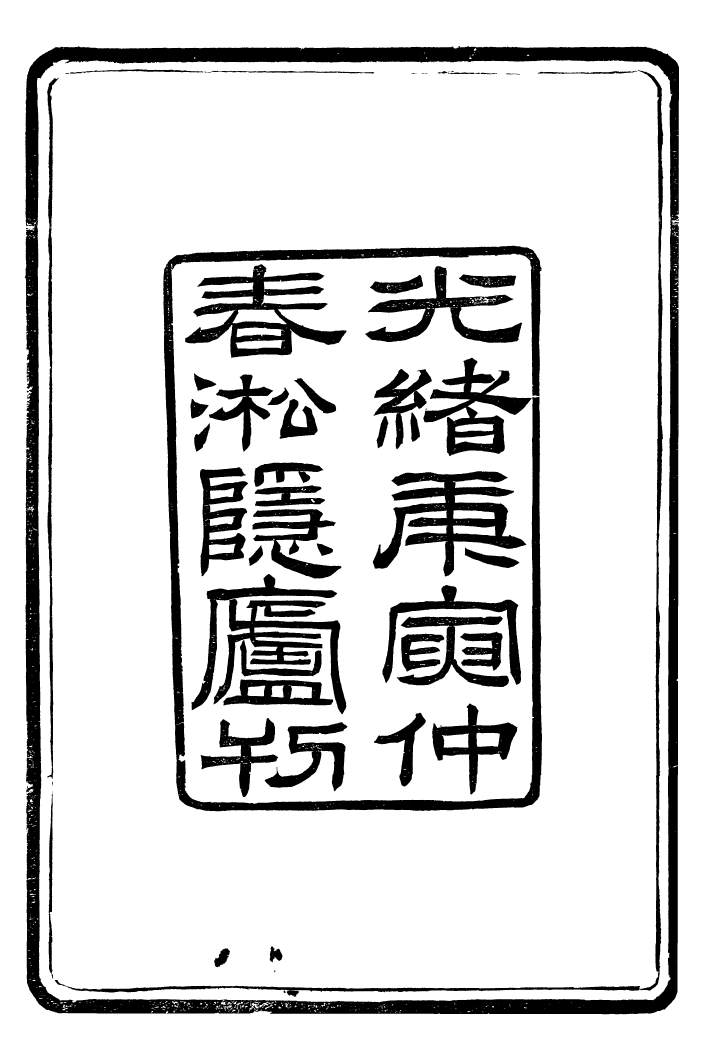 光緒庚寅仲
春淞隱廬刊